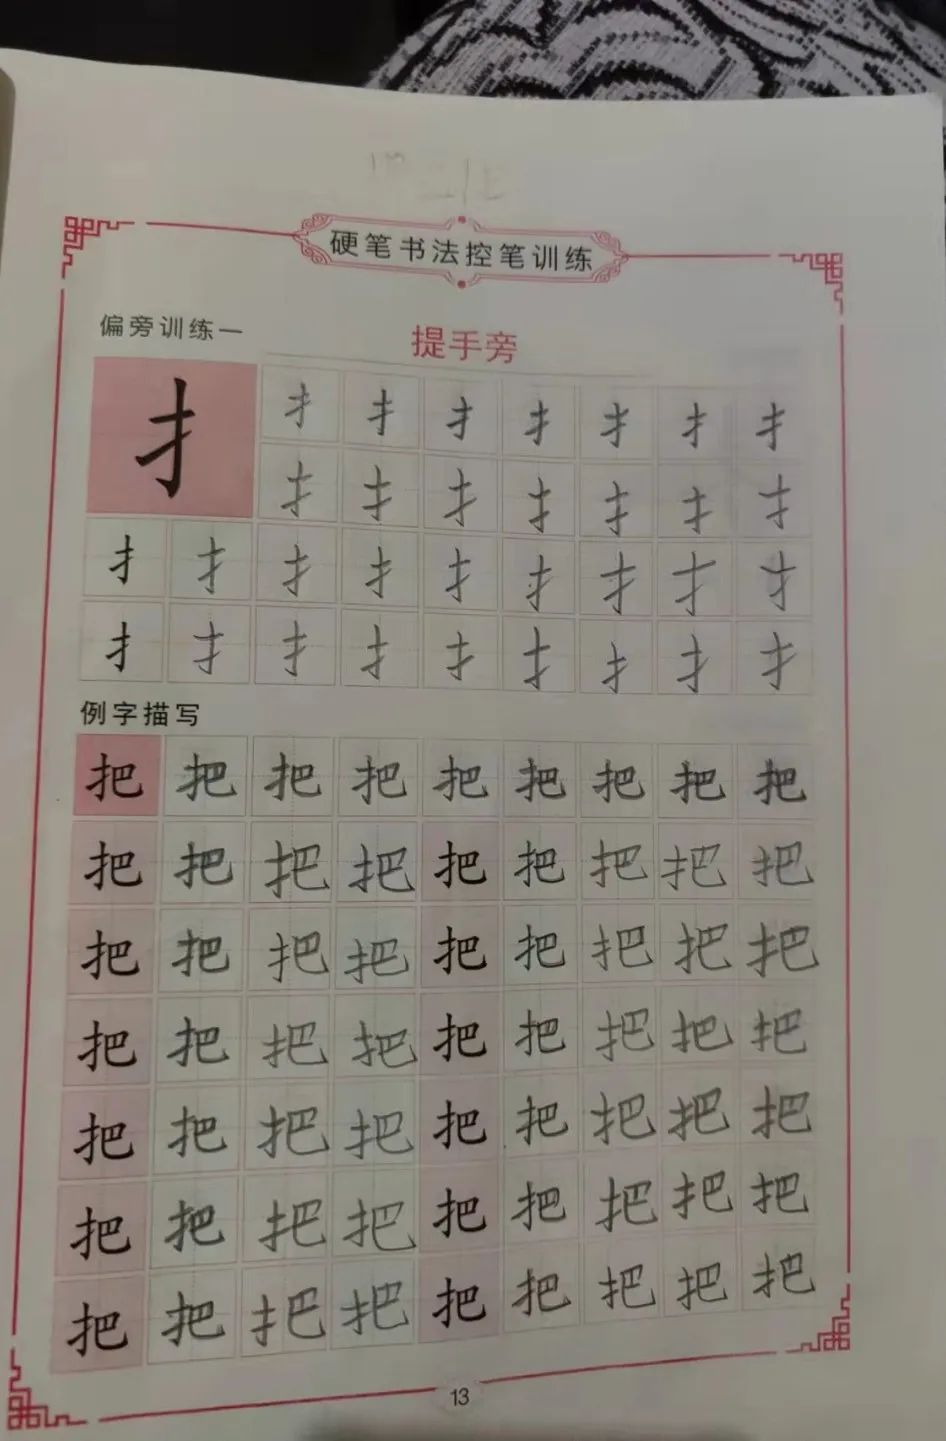 硬笔书法控笔训练
偏旁训练一
提手旁
扌扌扌扌扌扌扌扌
扌扌扌扌扌扌扌
扌扌扌扌扌扌扌扌扌
扌扌扌扌扌扌扌扌扌
例字描写
把把把把把把把把把
把把把把把把把把把
把把把把把把把把把
把把把把把把把把把
把把把把把把把把把
把把把把把把把把把
把把把把把把把把把
13